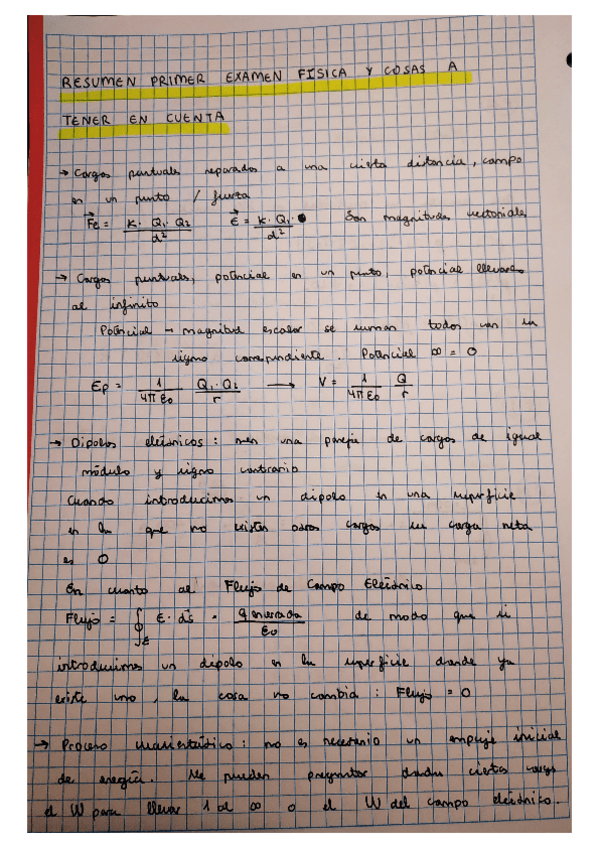 RESUMEN PRIMER EXAMEN FISICA Y COSAS A
TENER EN CUENTA
→ Cargas puntuales separadas a una cierta distancia, campo
en un punto / fuerza
Fe = K · Q1 · Q2 / d² E = K · Q1 · / d² Son magnitudes vectoriales
→ Cargas puntuales, potencial en un punto, potencial llevarla
al infinito
Potencial → magnitud escalar se suman todos con su
signo correspondiente. Potencial ∞ = 0
Ep = 1 / 4πε0 Q1 · Q2 / r → V = 1 / 4πε0 Q / r
→ Dipolos eléctricos: una pareja de cargas de igual
módulo y signo contrario
Cuando introducimos un dipolo en una superficie
en la que no existen otras cargas su carga neta
es 0
En cuanto al Flujo de Campo Eléctrico
Flujo = ∮ E · ds = q encerrada / ε0 de modo que si
introducimos un dipolo en la superficie donde ya
existe uno, la cosa no cambia: Flujo = 0
→ Proceso cuasiestático: no es necesario un empuje inicial
de energía. Me pueden preguntar dadas ciertas cargas
el W para llevar 1 al ∞ o el W del campo eléctrico.